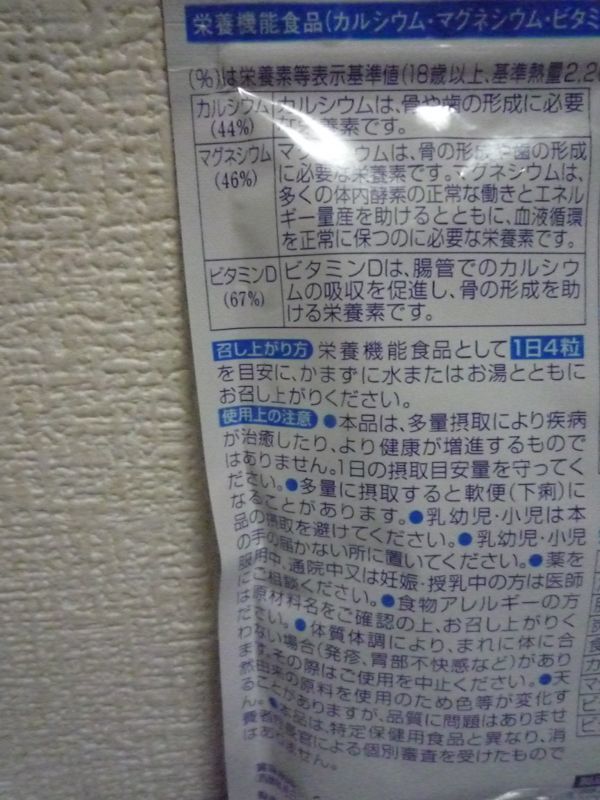 栄養機能食品(カルシウム・マグネシウム・ビタミ
(%)は栄養素等表示基準値(18歳以上、基準熱量2,20
カルシウム
(44%)
カルシウムは、骨や歯の形成に必要
な栄養素です。
マグネシウム
(46%)
マグネシウムは、骨の形成や歯の形成
に必要な栄養素です。マグネシウムは、
多くの体内酵素の正常な働きとエネル
ギー産生を助けるとともに、血液循環
を正常に保つのに必要な栄養素です。
ビタミンD
(67%)
ビタミンDは、腸管でのカルシウ
ムの吸収を促進し、骨の形成を助
ける栄養素です。
召し上がり方 栄養機能食品として1日4粒
を目安に、かまずに水またはお湯とともに
お召し上がりください。
使用上の注意 ●本品は、多量摂取により疾病
が治癒したり、より健康が増進するもので
はありません。1日の摂取目安量を守ってく
ださい。●多量に摂取すると軟便(下痢)に
なることがあります。●乳幼児・小児は本
品の摂取を避けてください。●乳幼児・小児
の手の届かない所に置いてください。●薬を
服用中、通院中又は妊娠・授乳中の方は医師
にご相談ください。●食物アレルギーの方
は原材料名をご確認の上、お召し上がりく
ださい。●体質体調により、まれに体に合
わない場合(発疹、胃部不快感など)があり
ます。その際はご使用を中止ください。●天
然由来の原料を使用のため色等が変化す
ることがありますが、品質に問題はありませ
ん。●本品は、特定保健用食品と異なり、消
費者庁長官による個別審査を受けたもので
はありません。